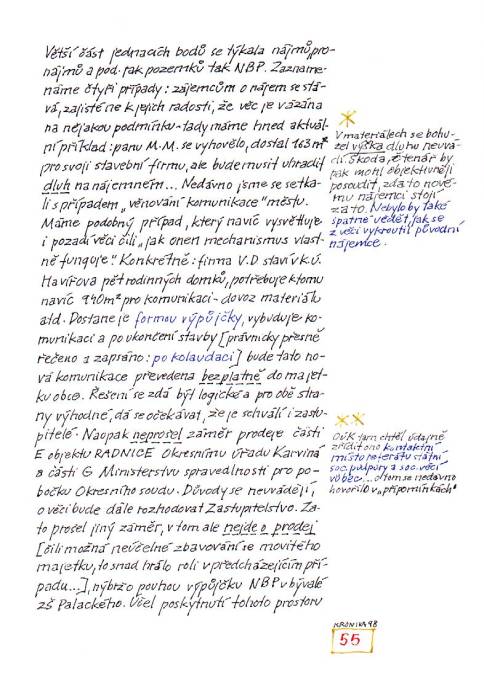 Větší část jednacích bodů se týkala nájmů, pro-
nájmů a pod. jak pozemků tak NBP. Zazname-
náme čtyři případy: zájemcům o nájem se stá-
vá, zajisté ne k jejich radosti, že věc je vázána
na nějakou podmínku - tady máme hned aktuál-
ní příklad: panu M.M. se vyhovělo, dostal 163 m²
pro svoji stavební firmu, ale bude muset uhradit
dluh na nájemném... Nedávno jsme se setka-
li s případem „věnování komunikace" městu.
Máme podobný případ, který navíc vysvětluje
i pozadí věci čili „jak onen mechanismus vlast-
ně funguje". Konkrétně: firma V.D staví v k.ú.
Havířova pět rodinných domků, potřebuje k tomu
navíc 940 m² pro komunikaci - dovoz materiálu
atd. Dostane je formou výpůjčky, vybuduje ko-
munikaci a po ukončení stavby [právnicky přesně
řečeno a zapsáno: po kolaudaci] bude tato no-
vá komunikace převedena bezplatně do majet-
ku obce. Řešení se zdá být logické a pro obě stra-
ny výhodné, dá se očekávat, že je schválí i zastu-
pitelé. Naopak neprošel záměr prodeje části
E objektu RADNICE Okresnímu úřadu Karviná
a části G Ministerstvu spravedlnosti pro po-
bočku Okresního soudu. Důvody se nevvádějí,
o věci bude dále rozhodovat Zastupitelstvo. Za-
to prošel jiný záměr, v tom ale nejde o prodej
[čili možná neúčelné zbavování se movitého
majetku, to snad hrálo roli v předcházejícím pří-
padu...], nýbrž o pouhou výpůjčku NBP v bývalé
ZŠ Palackého. Účel poskytnutí tohoto prostoru
V materiálech se bohu-
žel výška dluhu neuvá-
dí. Škoda, čtenář by
pak mohl objektivněji
posoudit, zda to nové-
mu nájemci stojí
za to. Nebylo by také
špatné vědět, jak se
z věci vykroutil původní
nájemce.
OÚK tam chtěl údajně
zřídit ono kontaktní
místo referátu státní
soc. podpory a soc. věcí
vůbec... o tom se nedávno
hovořilo v „připomínkách"
KRONIKA 98
55